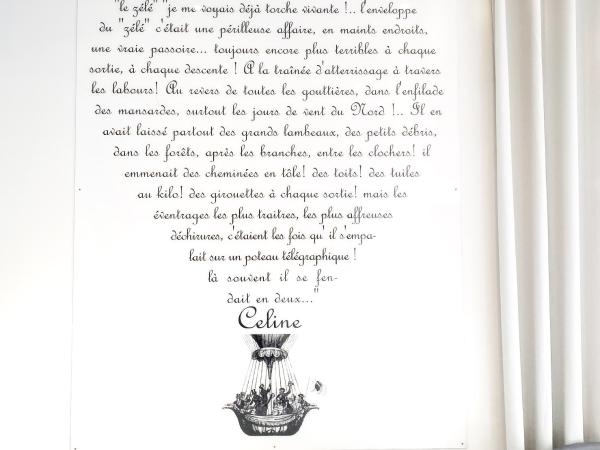 "le zélé" "je me voyais déjà torche vivante !.. l'enveloppe
du "zélé" c'était une périlleuse affaire, en maints endroits,
une vraie passoire... toujours encore plus terribles à chaque
sortie, à chaque descente ! A la traînée d'atterrissage à travers
les labours! Au revers de toutes les gouttières, dans l'enfilade
des mansardes, surtout les jours de vent du Nord !.. Il en
avait laissé partout des grands lambeaux, des petits débris,
dans les forêts, après les branches, entre les clochers! il
emmenait des cheminées en tôle! des toits! des tuiles
au kilo! des girouettes à chaque sortie! mais les
éventrages les plus traitres, les plus affreuses
déchirures, c'étaient les fois qu' il s'empa-
lait sur un poteau télégraphique !
là souvent il se fen-
dait en deux..."
Celine